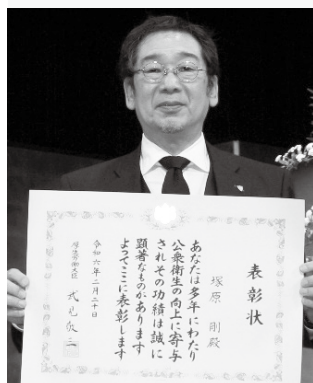 表彰状
塚原 剛殿
あなたは多年にわたり
公衆衛生の向上に寄与
されその功績は誠に
顕著なものがあります
よってここに表彰します
令和六年二月二十日
厚生労働大臣
武見敬三